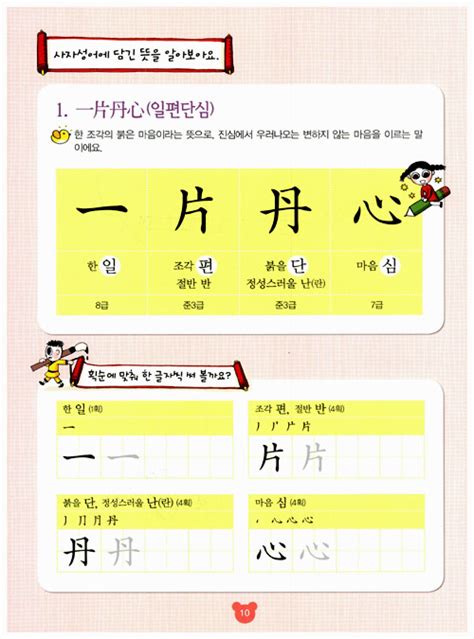 사자성어에 담긴 뜻을 알아보아요.
1. 一片丹心(일편단심)
한 조각의 붉은 마음이라는 뜻으로, 진심에서 우러나오는 변하지 않는 마음을 이르는 말
이에요.
一 片 丹 心
한 일 조각 편 붉을 단 마음 심
절반 반 정성스러울 난(란)
8급 준3급 준3급 7급
획순에 맞춰 한 글자씩 써 볼까요?
한 일 (1획) 조각 편, 절반 반 (4획)
一 丿 丿丨 片 片
一 一 片 片
붉을 단, 정성스러울 난(란) (4획) 마음 심 (4획)
丿 冂 月 丹 心 心 心
丹 丹 心 心
10